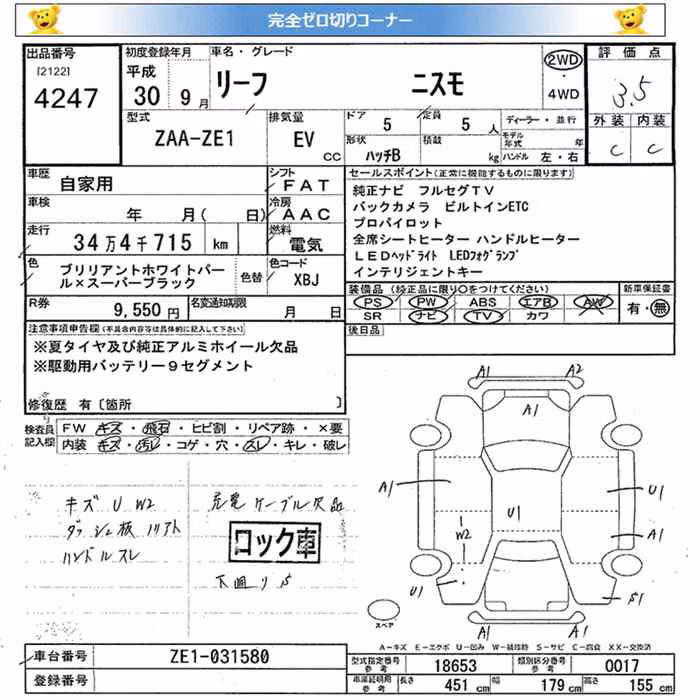 完全ゼロ切りコーナー
出品番号 初度登録年月 車名・グレード 評価点
[2122] 平成 リーフ ニスモ 2WD・4WD 3.5
4247 30 9月
型式 排気量 ドア 定員 ディーラー・並行 外装 内装
ZAA-ZE1 EV CC 5 5人 モデル年式 年 C C
形状 積載 ハンドル 左・右
ハッチB kg
車歴 シフト セールスポイント(正常に機能するものに限ります)
自家用 FAT 純正ナビ フルセグTV
車検 冷房 バックカメラ ビルトインETC
年 月( 日) AAC プロパイロット
走行 燃料 全席シートヒーター ハンドルヒーター
34万4千715 km 電気 LEDヘッドライト LEDフォグランプ
色 色替 色コード インテリジェントキー
ブリリアントホワイトパー XBJ
ル×スーパーブラック
装備品(純正品に限り○をつけてください) 新車保証書
PS PW ABS エアB AW 有・無
SR ナビ TV カワ
R券 9,550円 名変通知期限 月 日
後日品
注意事項申告欄(不具合内容等は具体的に記入して下さい)
※夏タイヤ及び純正アルミホイール欠品
※駆動用バッテリー9セグメント
修復歴 有[箇所 ]
検査員 FW キズ・飛石・ヒビ割・リペア跡・×要
記入欄 内装 キズ・汚レ・コゲ・穴・スレ・キレ・破レ
キズ U W2
ダッシュ板ハリアト
ハンドルスレ
充電ケーブル欠品
ロック車
下回りS
A1 A2
A1
A1 U1 U1
W2 A1
U1 S1
スペア
A1 A1
A-キズ E-エクボ U-凹み W-補修跡 S-サビ C-腐食 XX-交換済
車台番号 ZE1-031580
登録番号
型式指定番号 参考 18653 類別区分番号 参考 0017
車庫証明用 参考 長さ 451cm 幅 179cm 高さ 155cm